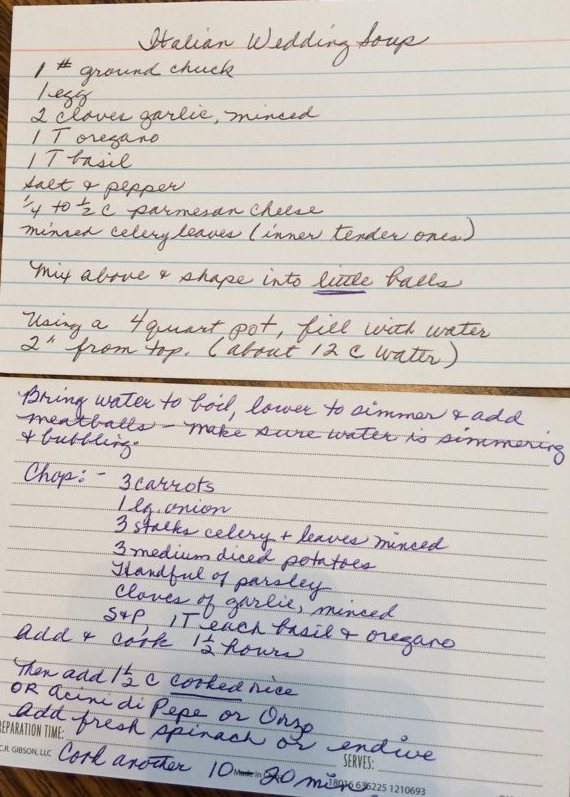 Italian Wedding Soup
1 # ground chuck
1 egg
2 cloves garlic, minced
1 T oregano
1 T basil
Salt & pepper
1/4 to 1/2 C parmesan cheese
minced celery leaves (inner tender ones)
Mix above & shape into little balls
Using a 4 quart pot, fill with water
2" from top. (about 12 C water)
Bring water to boil, lower to simmer & add
meatballs - make sure water is simmering
& bubbling.
Chop: - 3 carrots
1 lg. onion
3 stalks celery + leaves minced
3 medium diced potatoes
Handful of parsley
Cloves of garlic, minced
S&P, 1T each basil & oregano
Add & cook 1 1/2 hours
Then add 1 1/2 C cooked rice
OR Acini di Pepe or Orzo
Add fresh spinach or endive
REPARATION TIME: SERVES:
C.R. GIBSON, LLC Made in 18016 636225 1210693
Cook another 10 - min